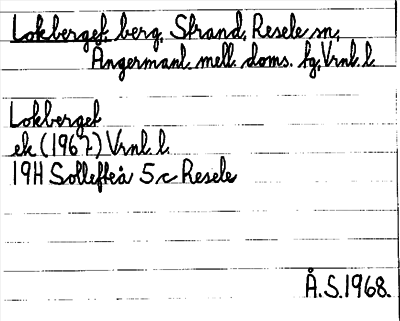 Lokberget berg, Strand, Resele sn,
Ångermanl. mell. doms. fg, Vrnl. l.
Lokberget
ek (1967) Vrnl. l.
19H Sollefteå 5 c Resele
Å.S.1968.